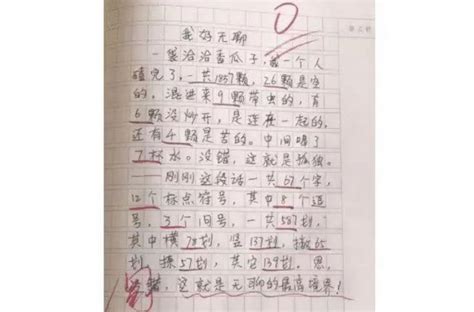 我好无聊
一袋洽洽香瓜子,我一个人
嗑完了,一共1857颗,26颗是空
的,混进来9颗带虫的,有
6颗没炒开,是连在一起的,
还有4颗是苦的。中间喝了
7杯水。没错,这就是孤独。
——刚刚这段话一共67个字,
12个标点符号,其中8个逗
号,3个句号,一共587划,
其中横78划,竖137划,撇65
划,捺57划,其它139划。恩,
错,这就是无聊的最高境界!